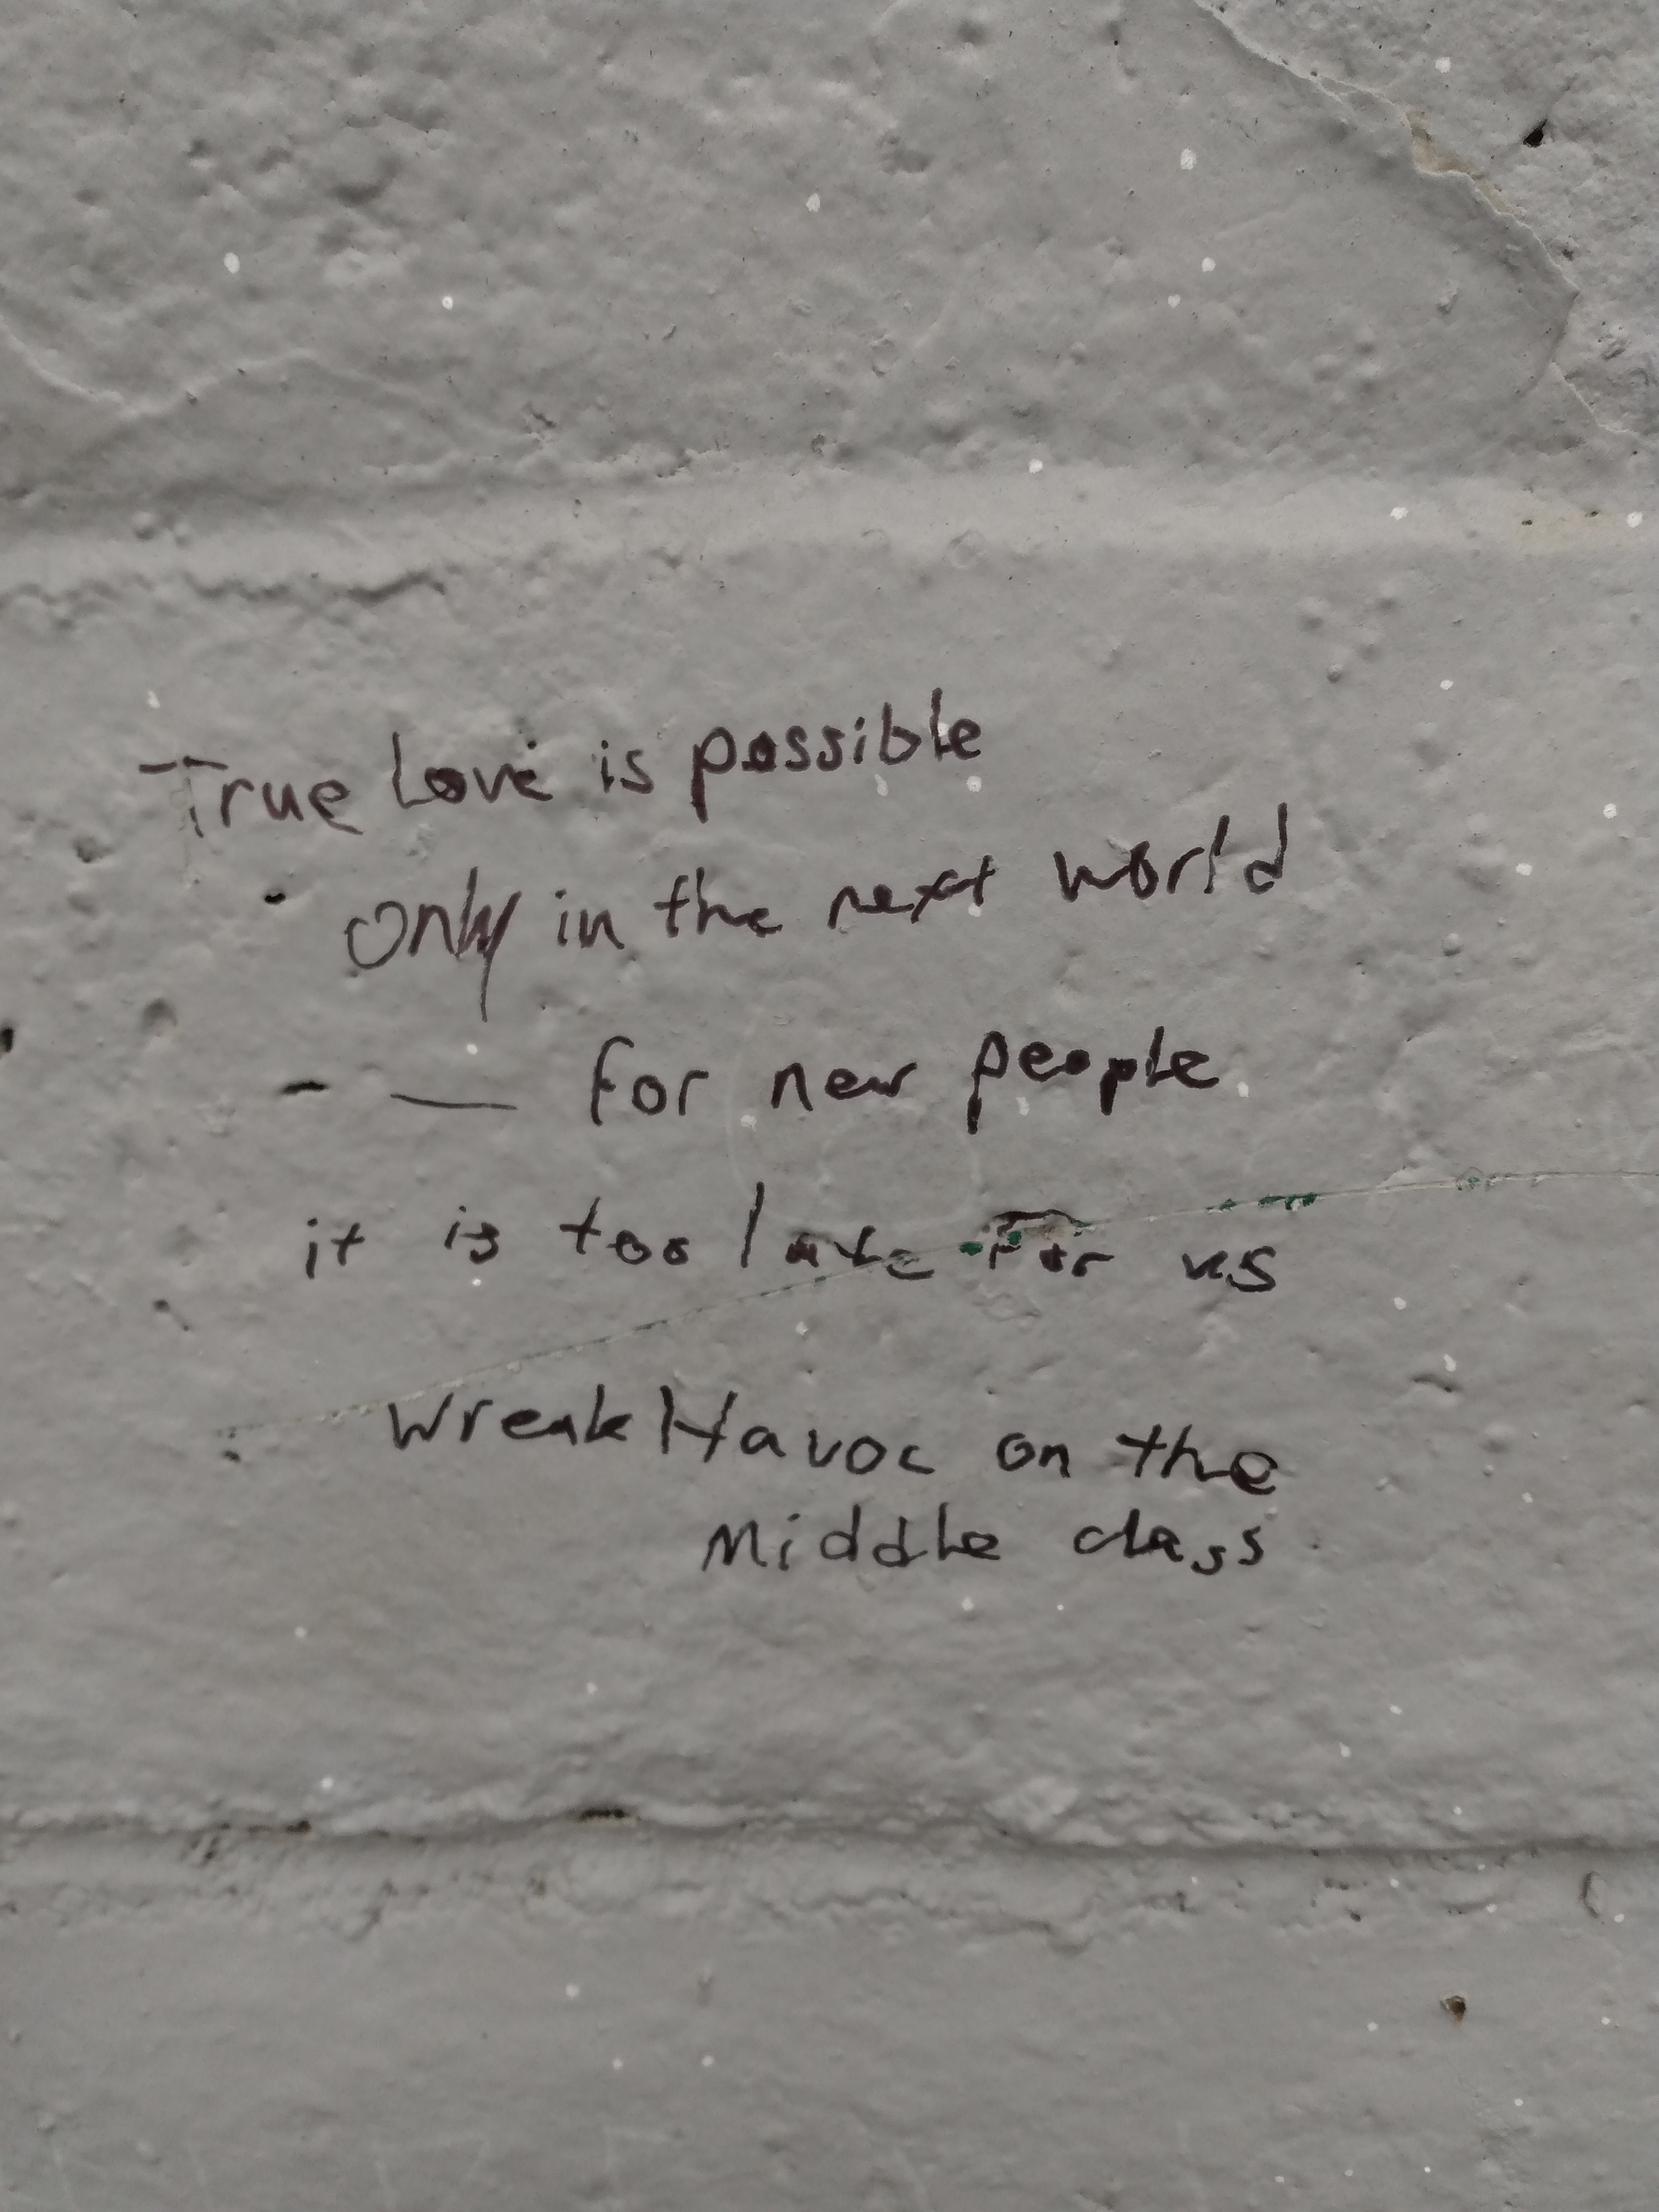 True Love is possible
only in the next world
- — for new people
it is too late for us
wreak Havoc on the
Middle class